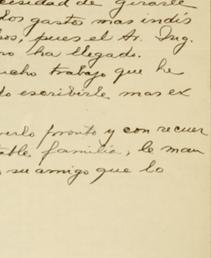 cesidad de girarle
dos gastos mas indis
sos, pues el Sr. Ing.
ro ha llegado.
ucho trabajo que he
do escribirle mas ex
verlo pronto y con recuer
table familia, le man
su amigo que lo